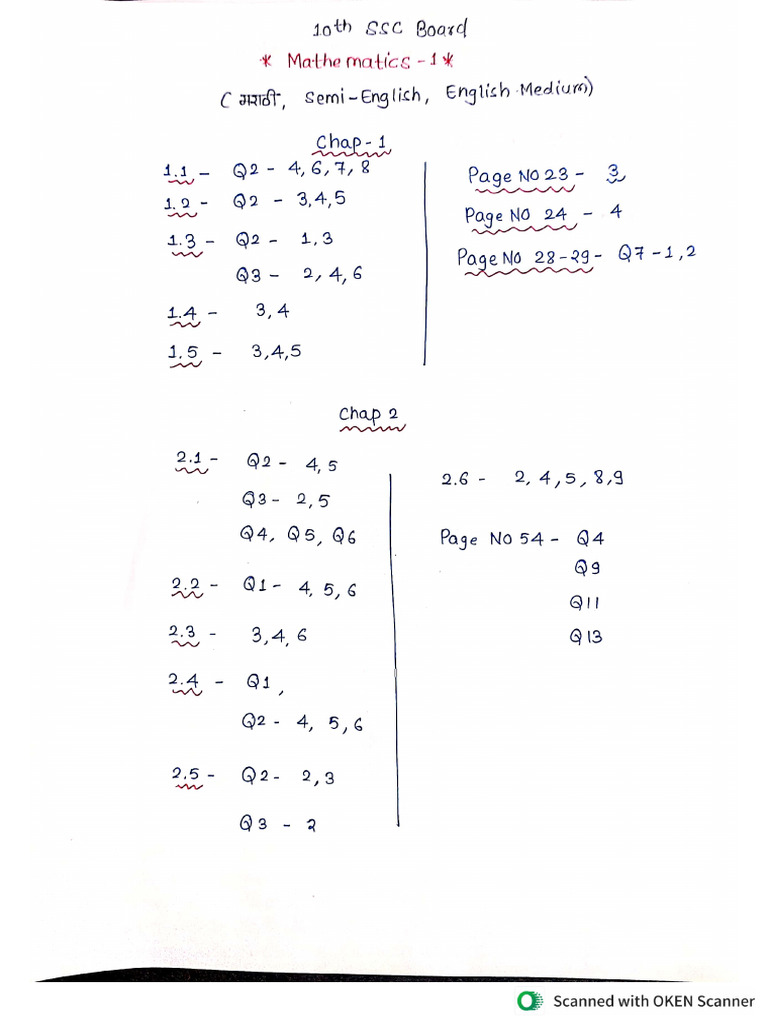 10th SSC Board
* Mathematics - 1 *
( मराठी, Semi-English, English Medium)
Chap - 1
1.1 - Q2 - 4, 6, 7, 8
1.2 - Q2 - 3,4,5
1.3 - Q2 - 1,3
Q3 - 2, 4, 6
1.4 - 3,4
1.5 - 3,4,5
Page NO 23 - 3
Page NO 24 - 4
Page NO 28-29 - Q7 - 1,2
Chap 2
2.1 - Q2 - 4,5
Q3 - 2,5
Q4, Q5, Q6
2.2 - Q1 - 4, 5, 6
2.3 - 3,4, 6
2.4 - Q1,
Q2 - 4, 5, 6
2.5 - Q2 - 2,3
Q3 - 2
2.6 - 2, 4, 5, 8,9
Page NO 54 - Q4
Q9
Q11
Q13
Scanned with OKEN Scanner